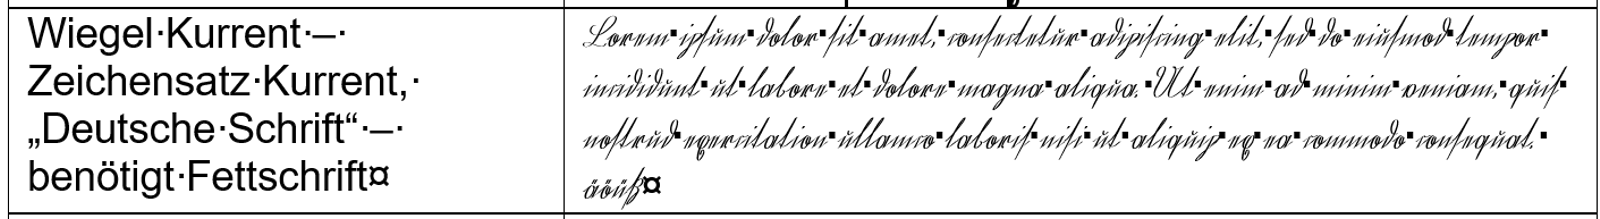 Wiegel·Kurrent·–·
Zeichensatz·Kurrent,·
„Deutsche·Schrift“·–·
benötigt·Fettschrift¤
Lorem·ipsum·dolor·sit·amet,·consectetur·adipiscing·elit,·sed·do·eiusmod·tempor·
incididunt·ut·labore·et·dolore·magna·aliqua.·Ut·enim·ad·minim·veniam,·quis·
nostrud·exercitation·ullamco·laboris·nisi·ut·aliquip·ex·ea·commodo·consequat.·
äöüß¤